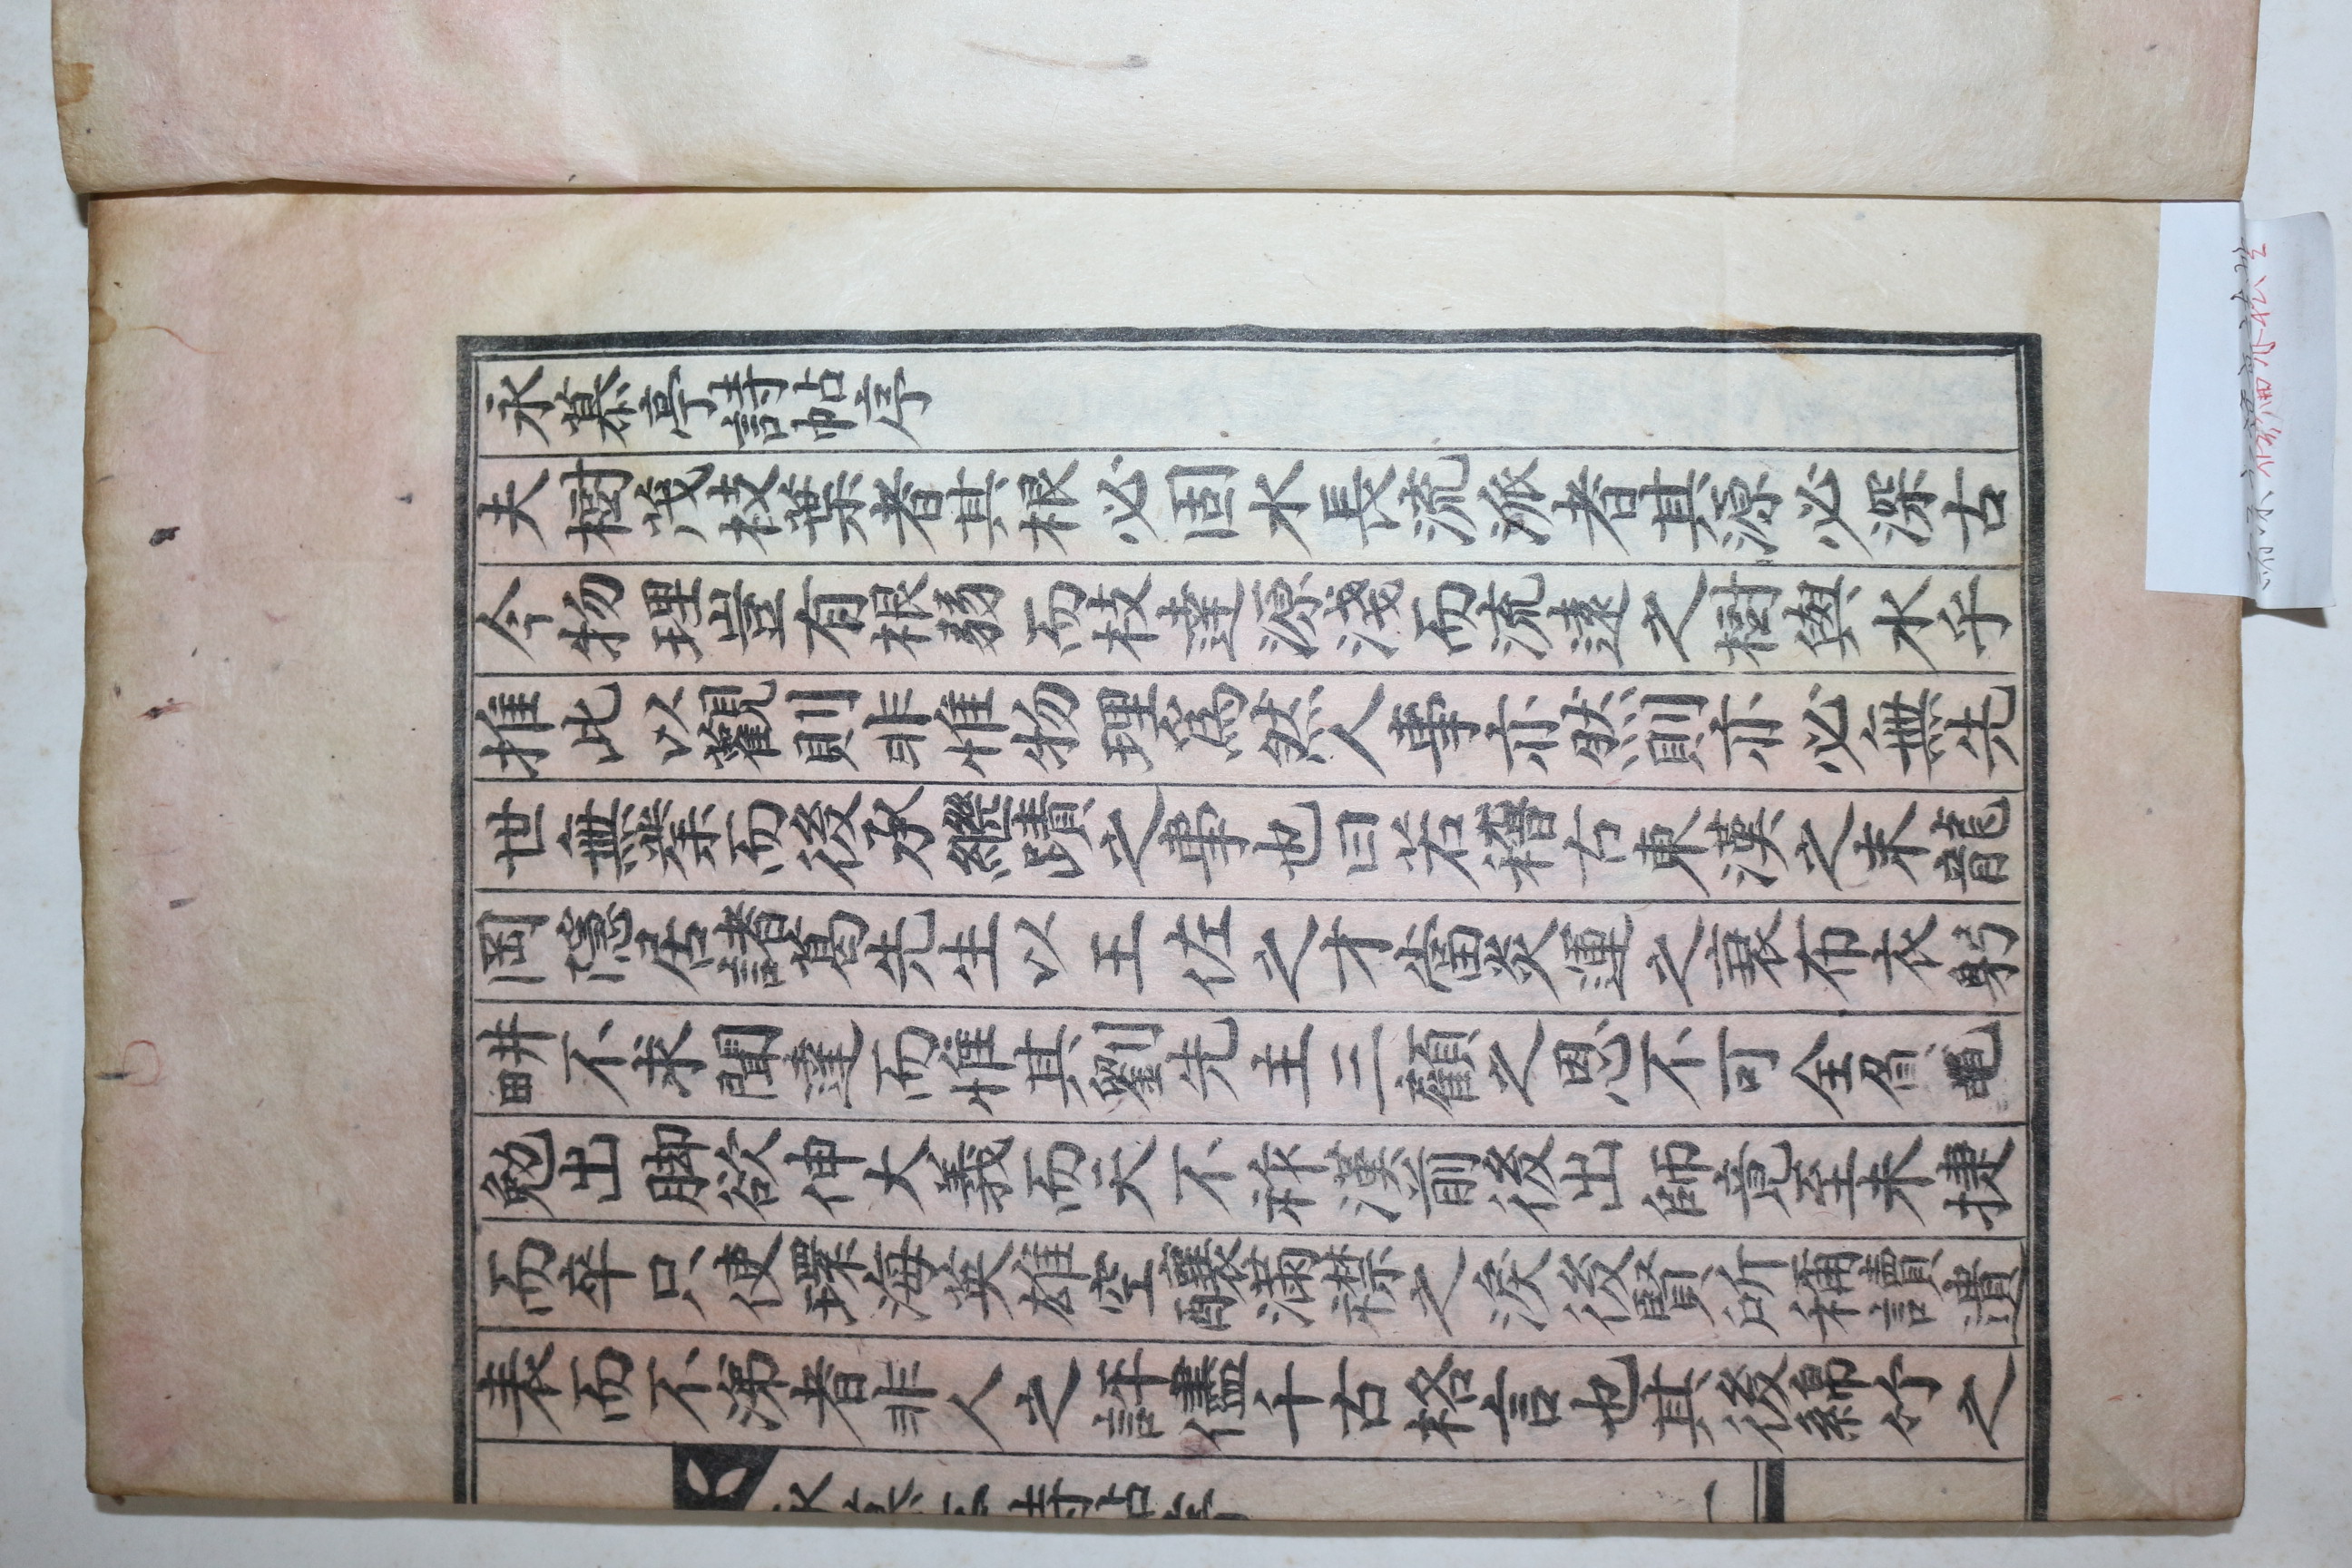 永慕亭詩帖序
夫樹茂枝葉者其根必固水長流派者其源必深古
今物理豈有根弱而枝達源淺而流遠之樹與水乎
推此以觀則非惟物理爲然人事亦然則亦必無先
世無業而後承繼蹟之事也曰若稽古東漢之末龍
岡隱居諸葛先生以王佐之才當炎運之衰布衣躬
畊不求聞達而惟其劉先主三顧之恩不可全負黽
勉出脚欲伸大義而天不祚漢前後出師竟至未捷
而卒只使環海英雄空釀滿襟之淚後賢所稱讀遺
表而不涕者非人之評儘千古格言也其後綿竹之
詩帖
一